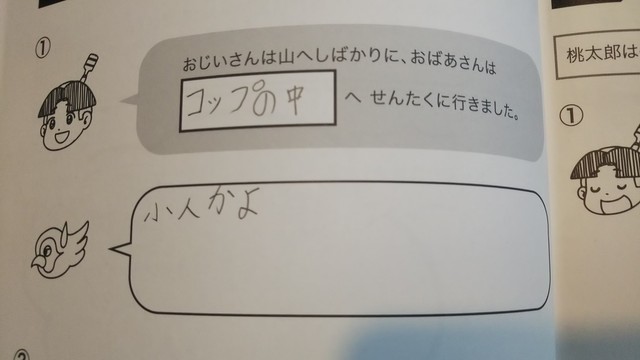 ①
おじいさんは山へしばかりに、おばあさんは
コップの中 へ せんたくに行きました。
小人かよ
②
桃太郎は
①